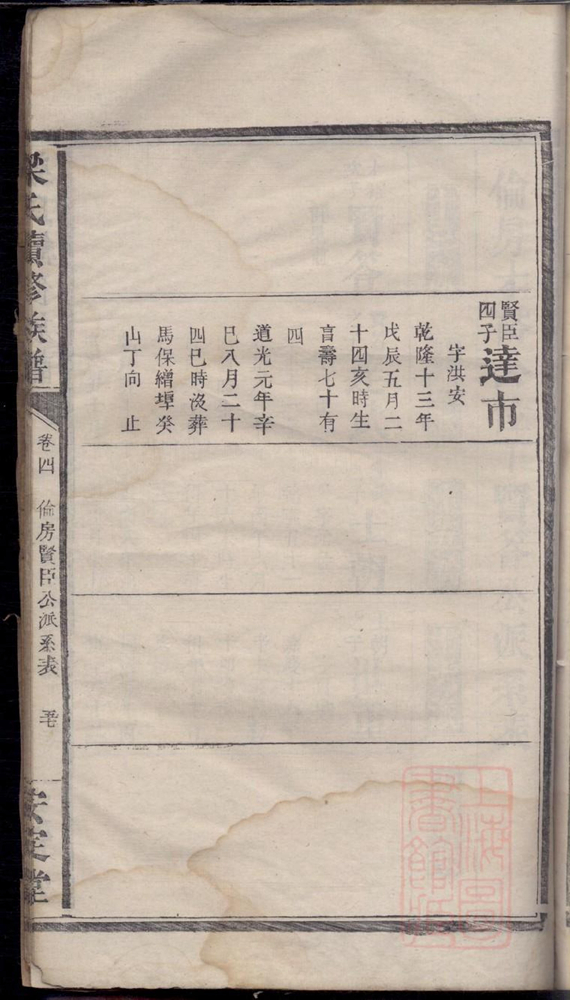 賢臣四子 達市
字洪安
乾隆十三年
戊辰五月二
十四亥時生
享壽七十有
四
道光元年辛
巳八月二十
四巳時沒葬
馬保繒墠癸
山丁向 止
梁氏續修族譜
卷四 倫房賢臣公派系表
安定堂
上海圖書館藏